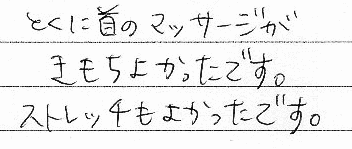 とくに首のマッサージが
きもちよかったです。
ストレッチもよかったです。